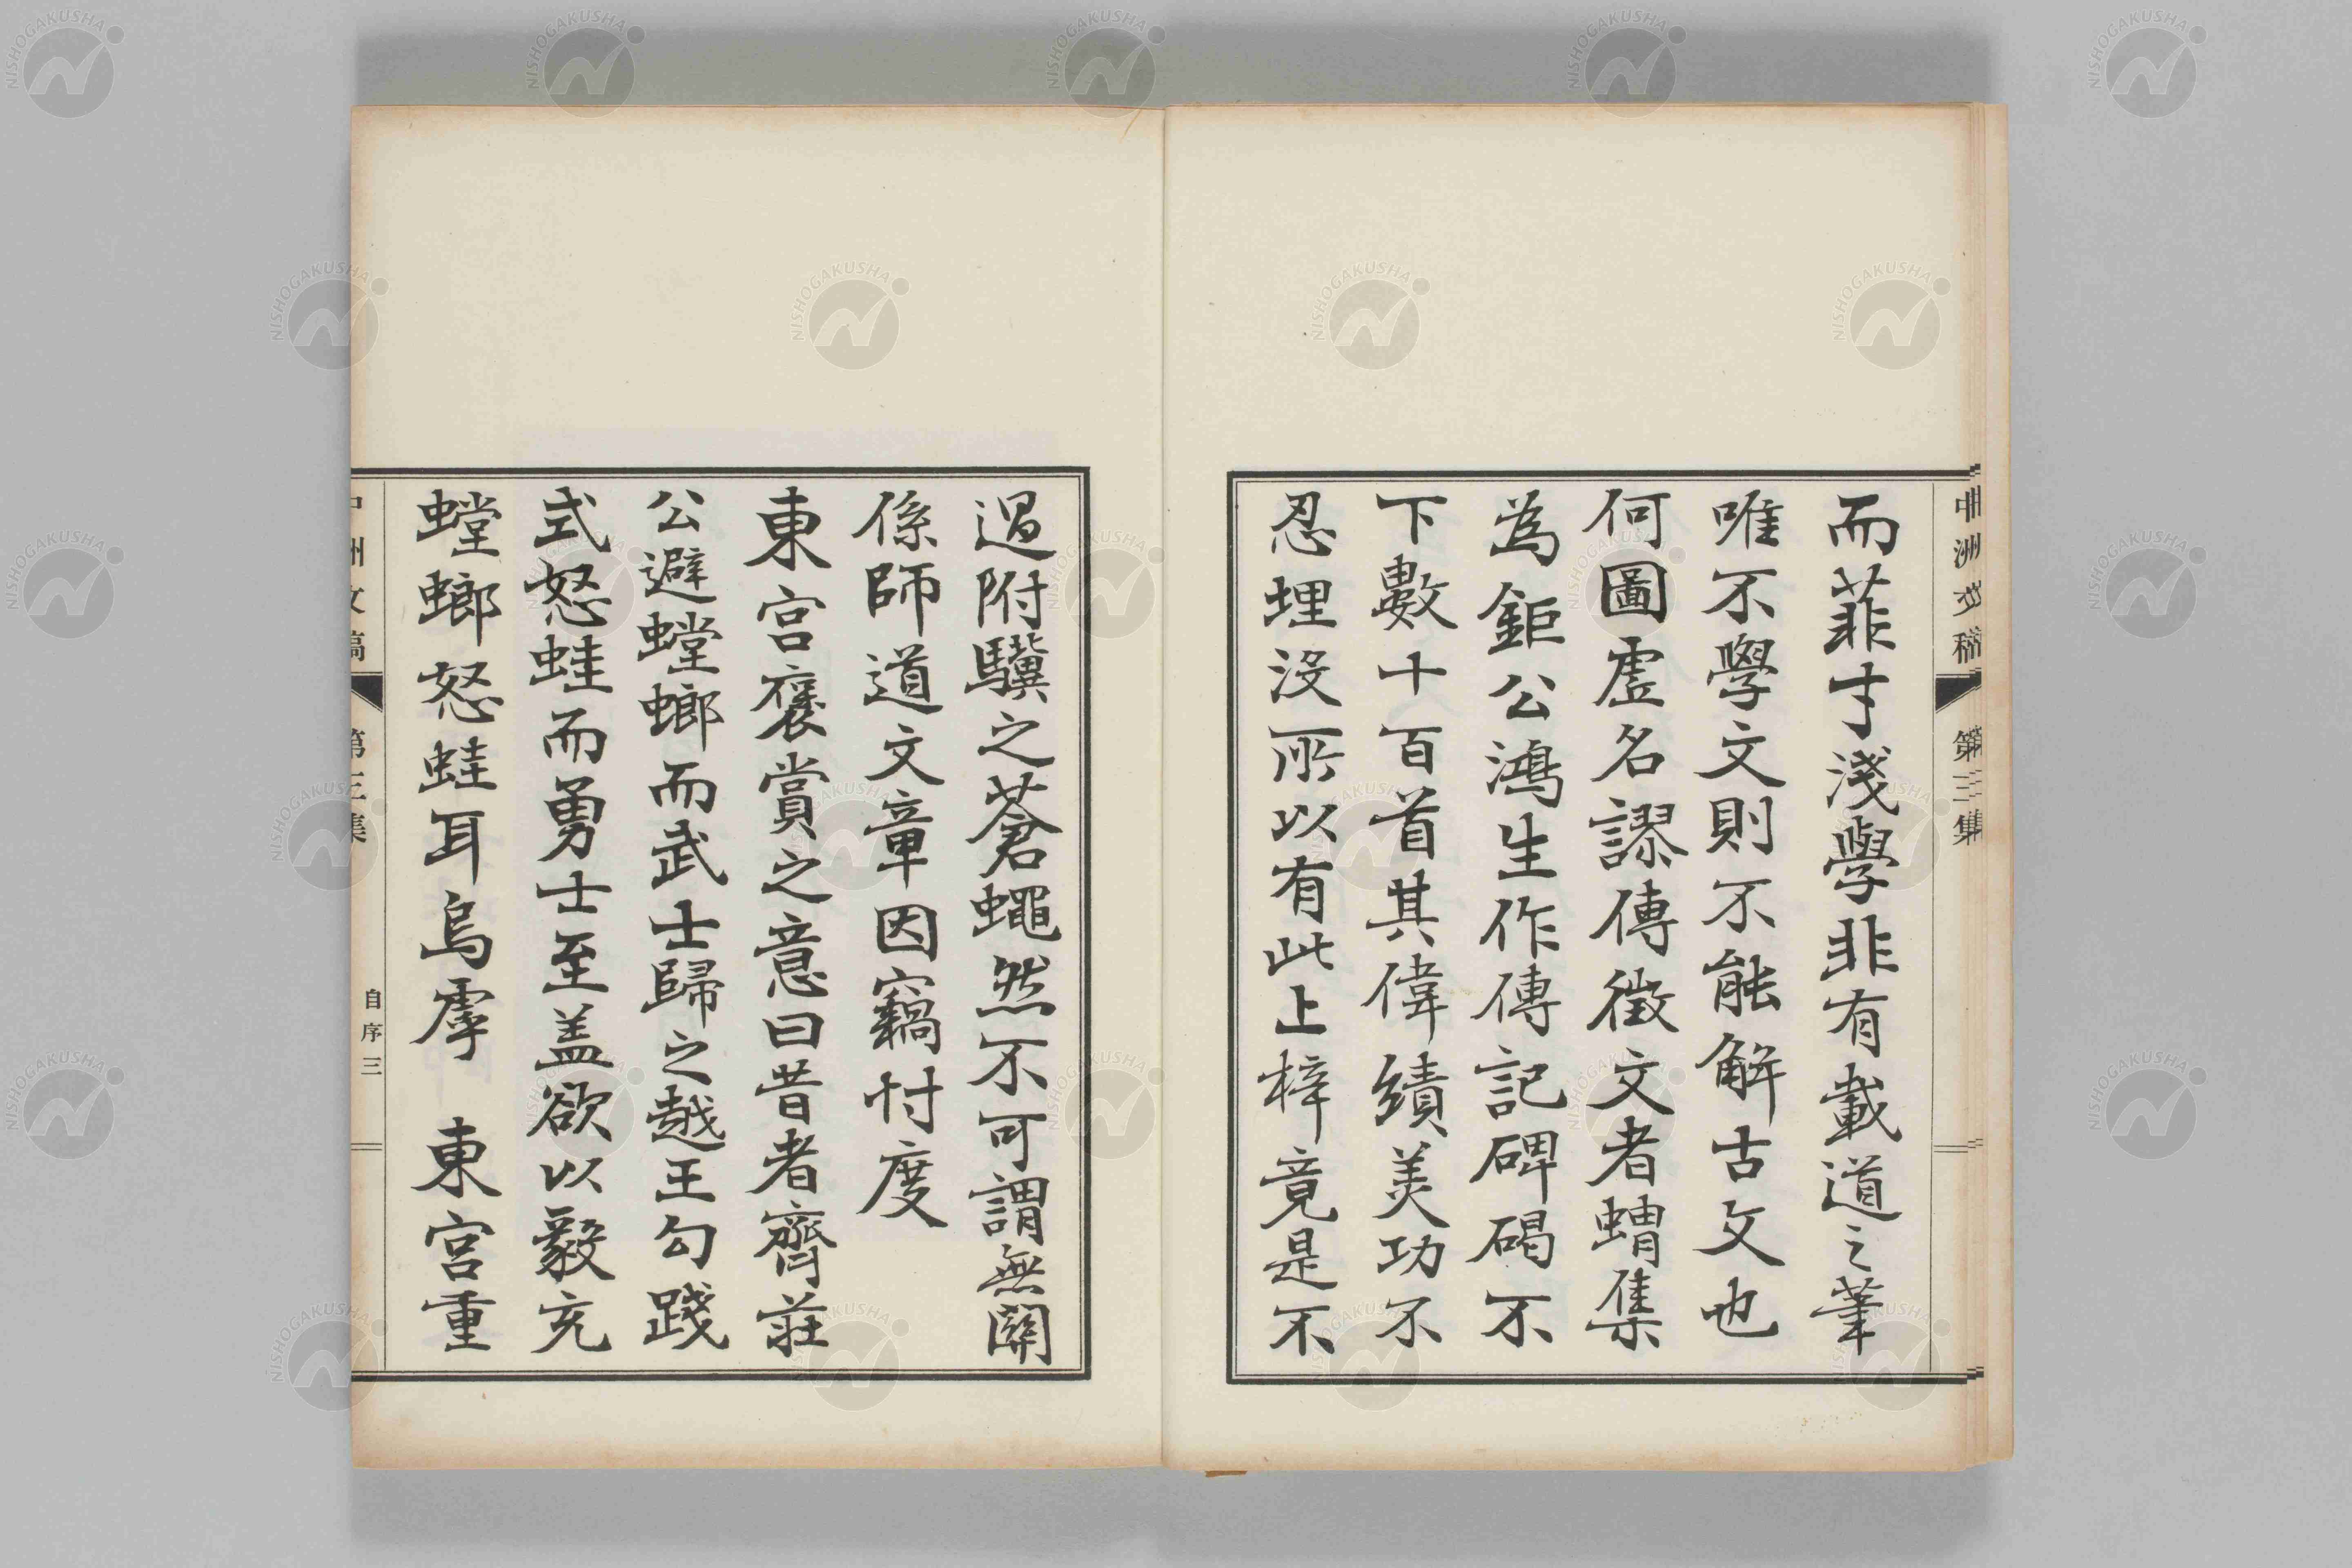 而菲才淺學非有載道之筆
唯不學文則不能解古文也
何圖虛名謬傳徵文者蝟集
為鉅公鴻生作傳記碑碣不
下數十百首其偉績美功不
忍埋沒所以有此上梓竟是不
中洲文稿
第三集
過附驥之蒼蠅然不可謂無關
係師道文章因竊忖度
東宮褒賞之意曰昔者齊莊
公避螳螂而武士歸之越王勾踐
式怒蛙而勇士至蓋欲以毅充
螳螂怒蛙耳烏虖 東宮重
中洲文稿
第三集
自序三
NISHOGAKUSHA